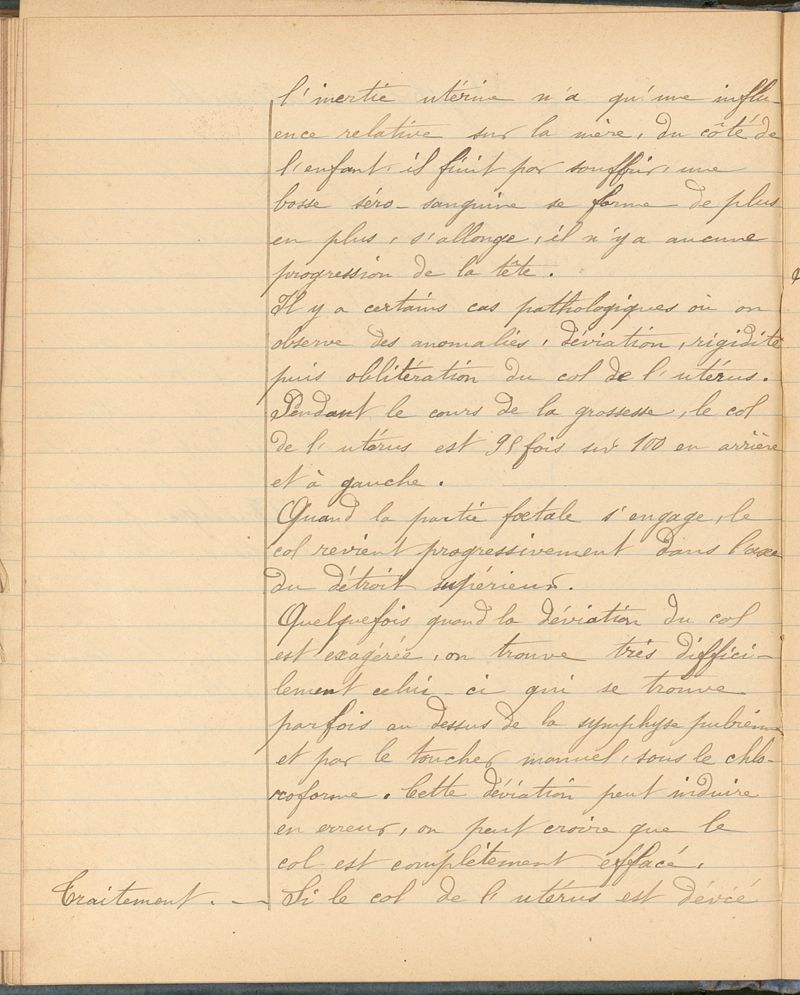 l'inertie utérine n'a qu'une influ-
ence relative sur la mère, du côté de
l'enfant, il finit par souffrir, une
bosse séro-sanguine se forme de plus
en plus, s'allonge, il n'y a aucune
progression de la tête.
Il y a certains cas pathologiques où on
observe des anomalies, déviation, rigidité
puis oblitération du col de l'utérus.
Pendant le cours de la grossesse, le col
de l'utérus est 95 fois sur 100 en arrière
et à gauche.
Quand la partie fœtale s'engage, le
col revient progressivement dans l'axe
du détroit supérieur.
Quelquefois quand la déviation du col
est exagérée, on trouve très diffici-
lement celui-ci qui se trouve
parfois au dessus de la symphyse pubienne
et par le toucher manuel, sous le chlo-
roforme. Cette déviation peut induire
en erreur, on peut croire que le
col est complètement effacé.
Traitement. — Si le col de l'utérus est dévié